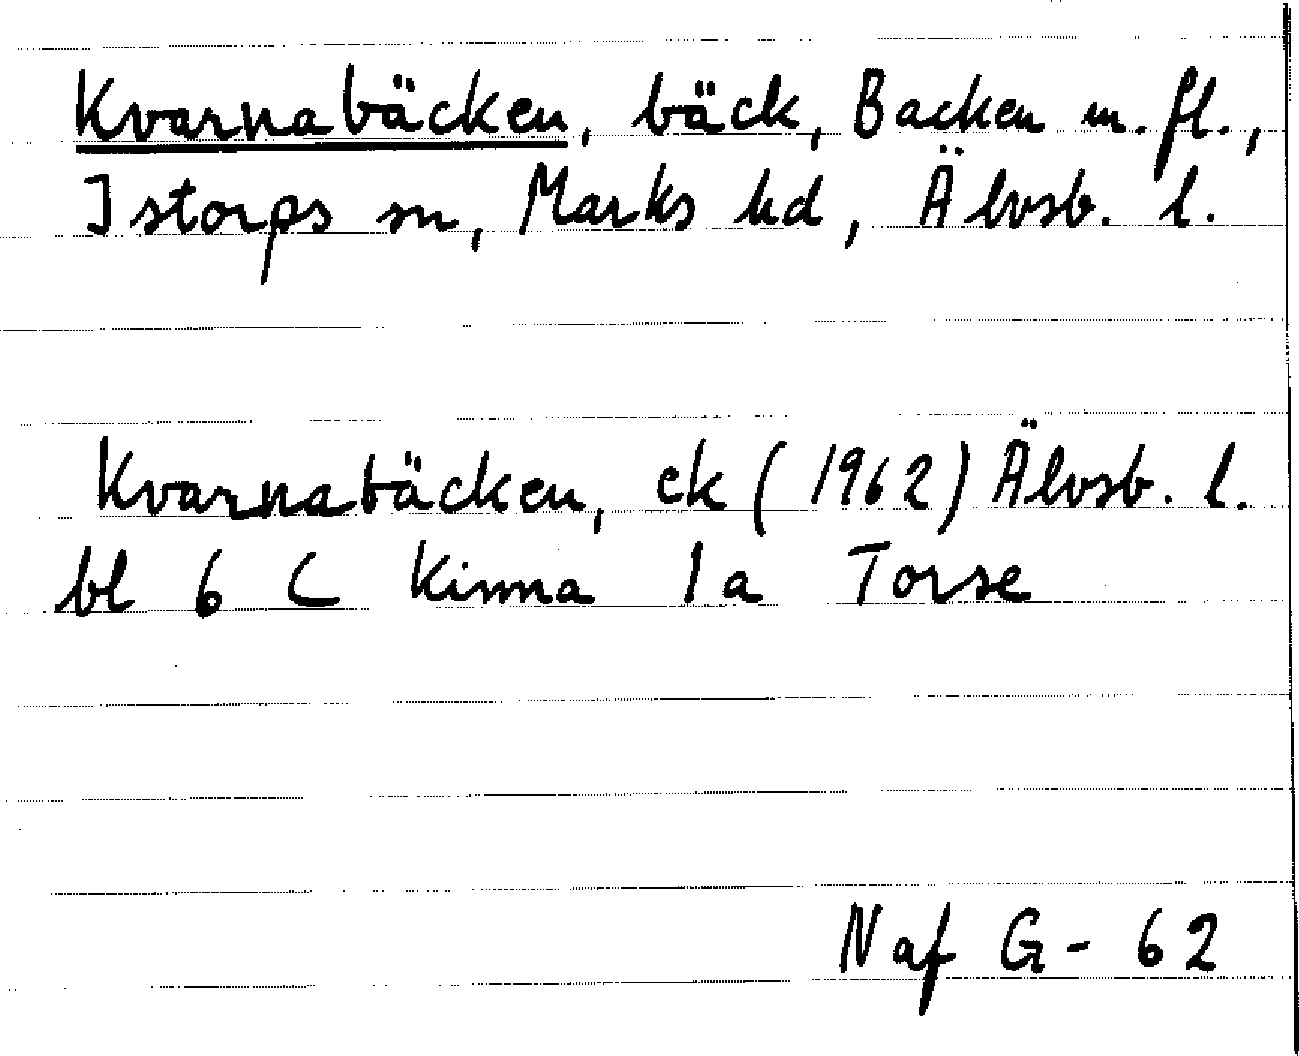 Kvarnabäcken, bäck, Backen m. fl.,
Istorps sn, Marks hd, Älvsb. l.
Kvarnabäcken, ek (1962) Älvsb. l.
bl 6 C Kinna 1a Torse
Naf G-62